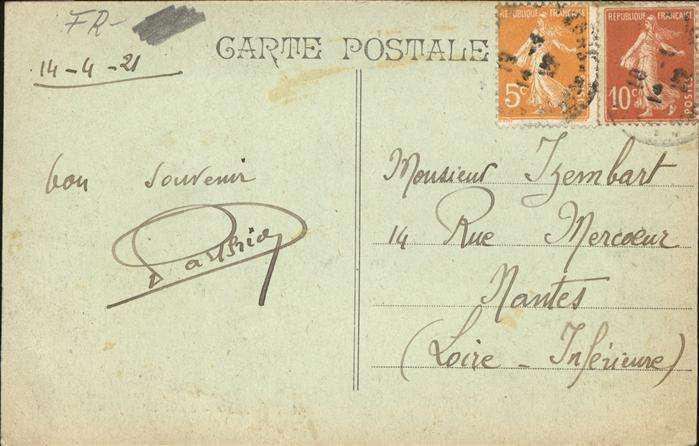 FR-
14-4-21
CARTE POSTALE
RÉPUBLIQUE FRANÇAISE
5c
RÉPUBLIQUE FRANÇAISE
10c
POSTES
bon souvenir
Monsieur Izembart
14 Rue Mercoeur
Nantes
(Loire - Inférieure)